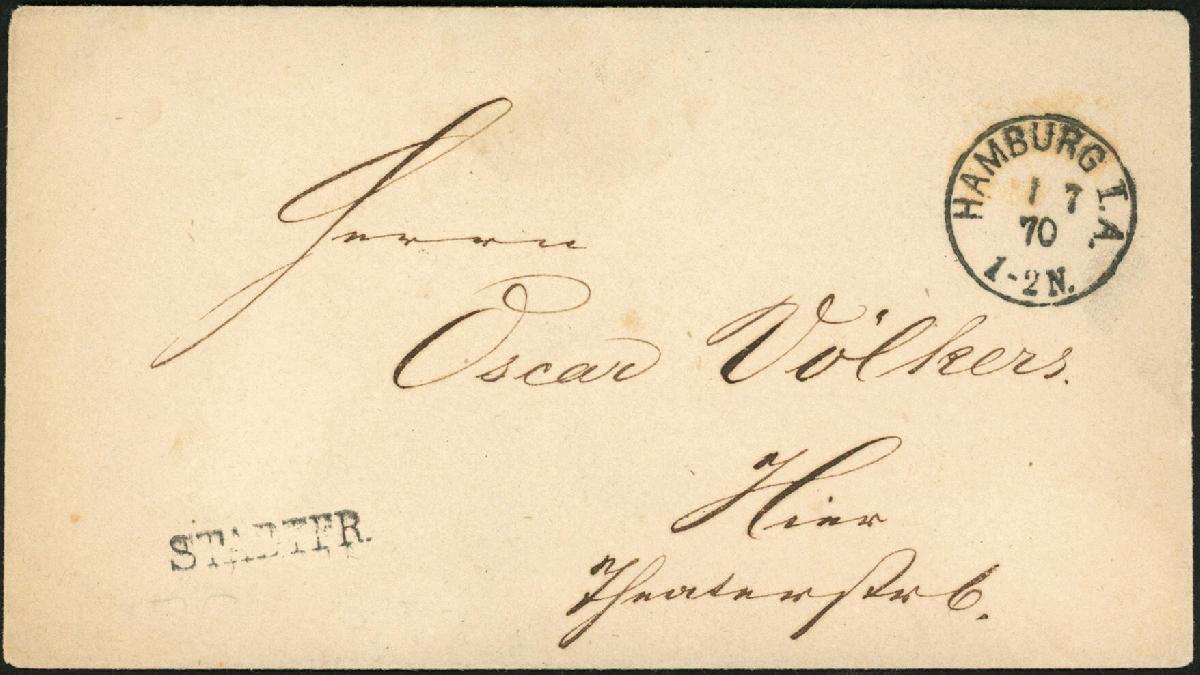 HAMBURG I. A.
1 7
70
1-2 N.
Herrn
Oscar Völkers.
Hier
Theaterstr 6.
STADTFR.